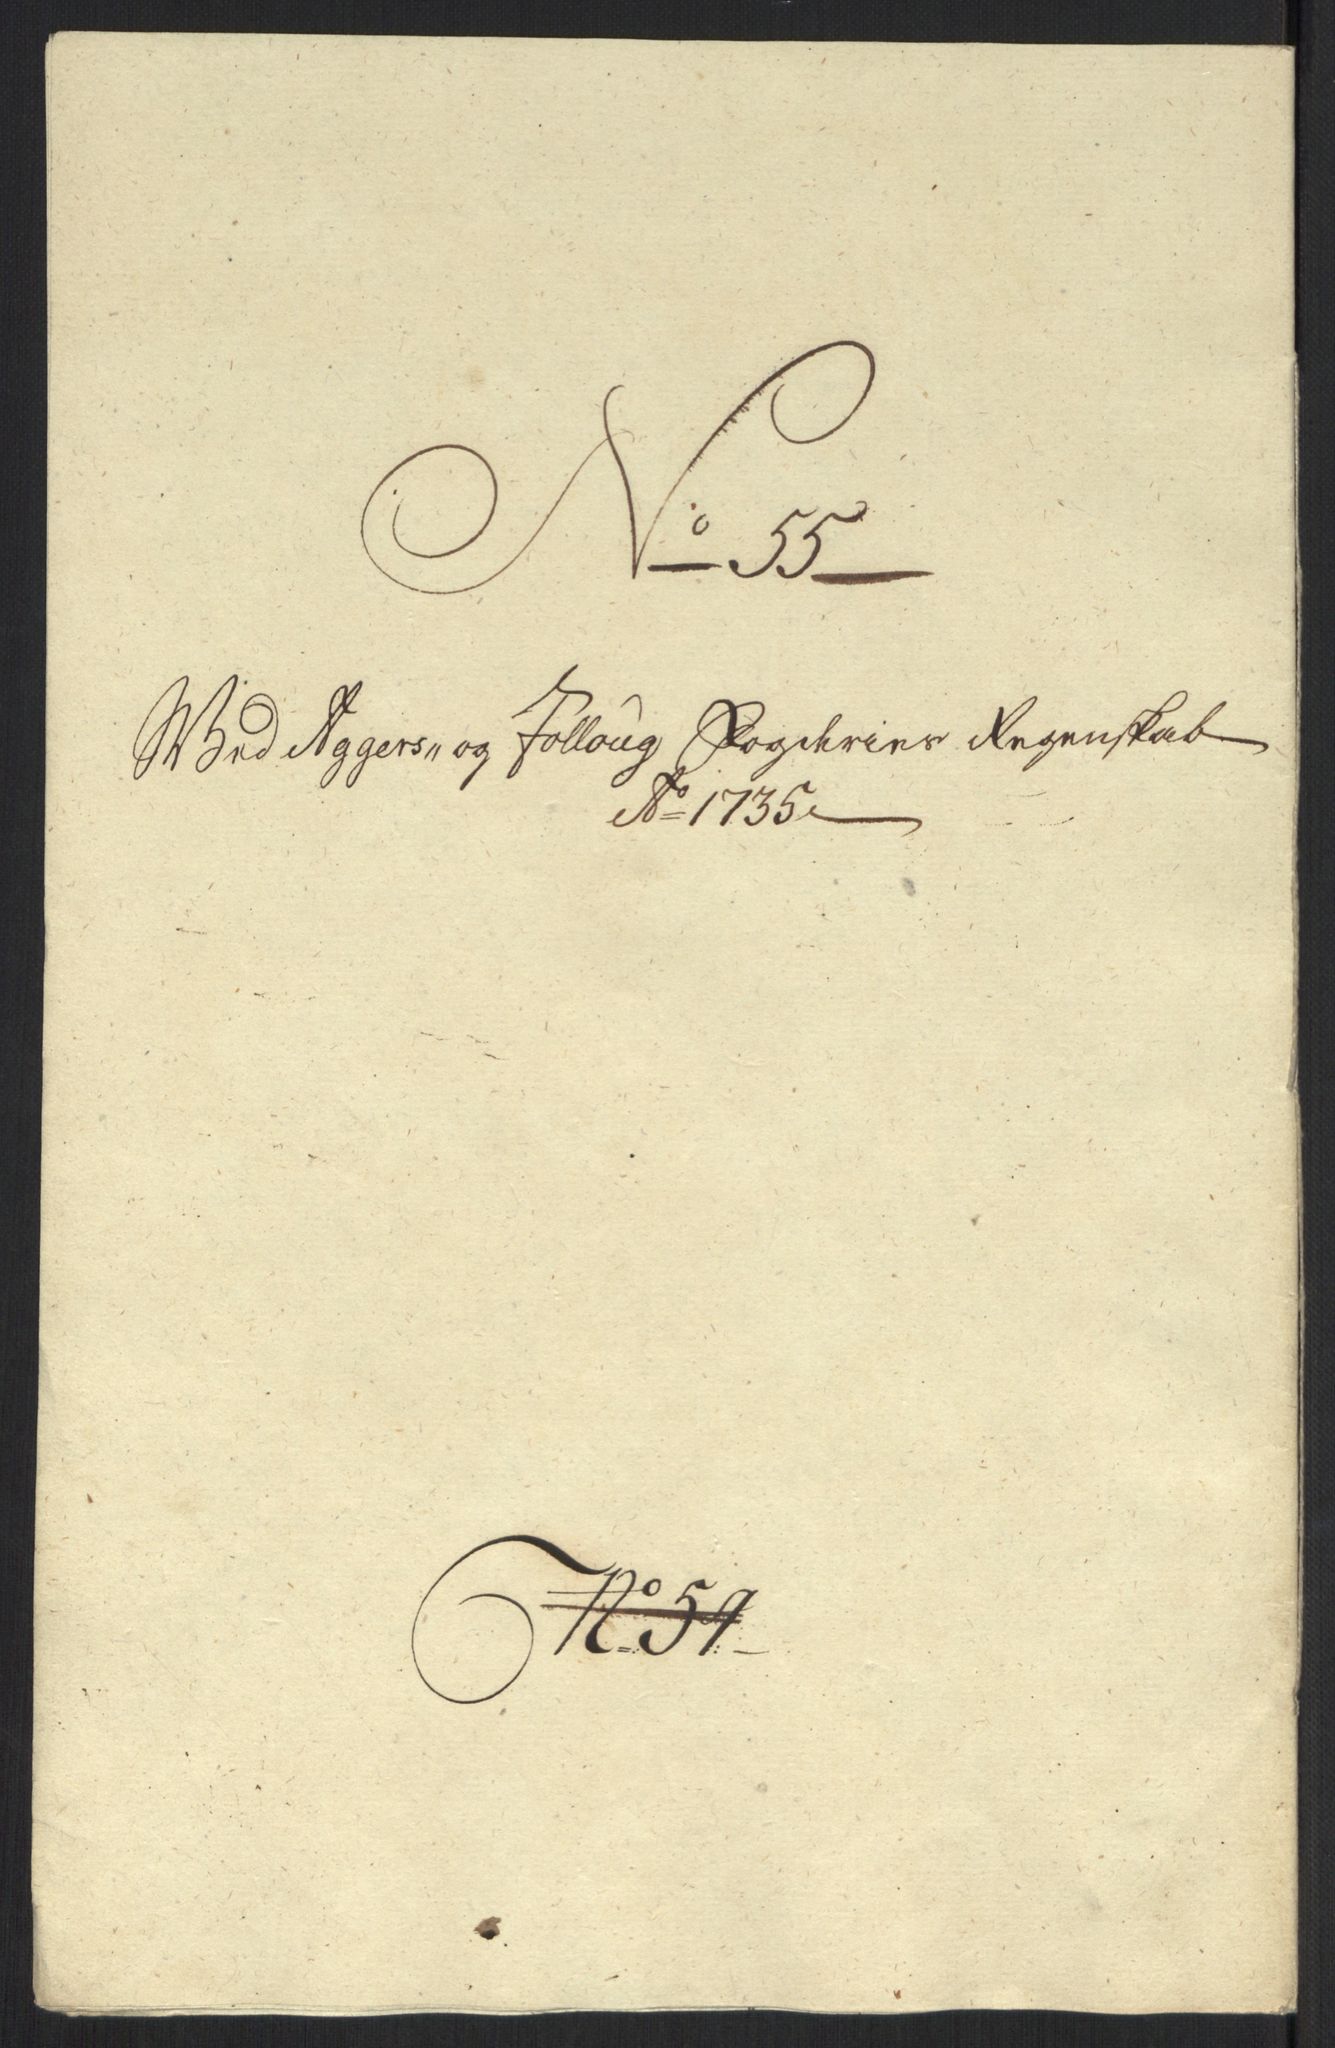 No 55
Wed Aggers„ og Folloug Fogderies Regenskab
Ao 1735
No 54